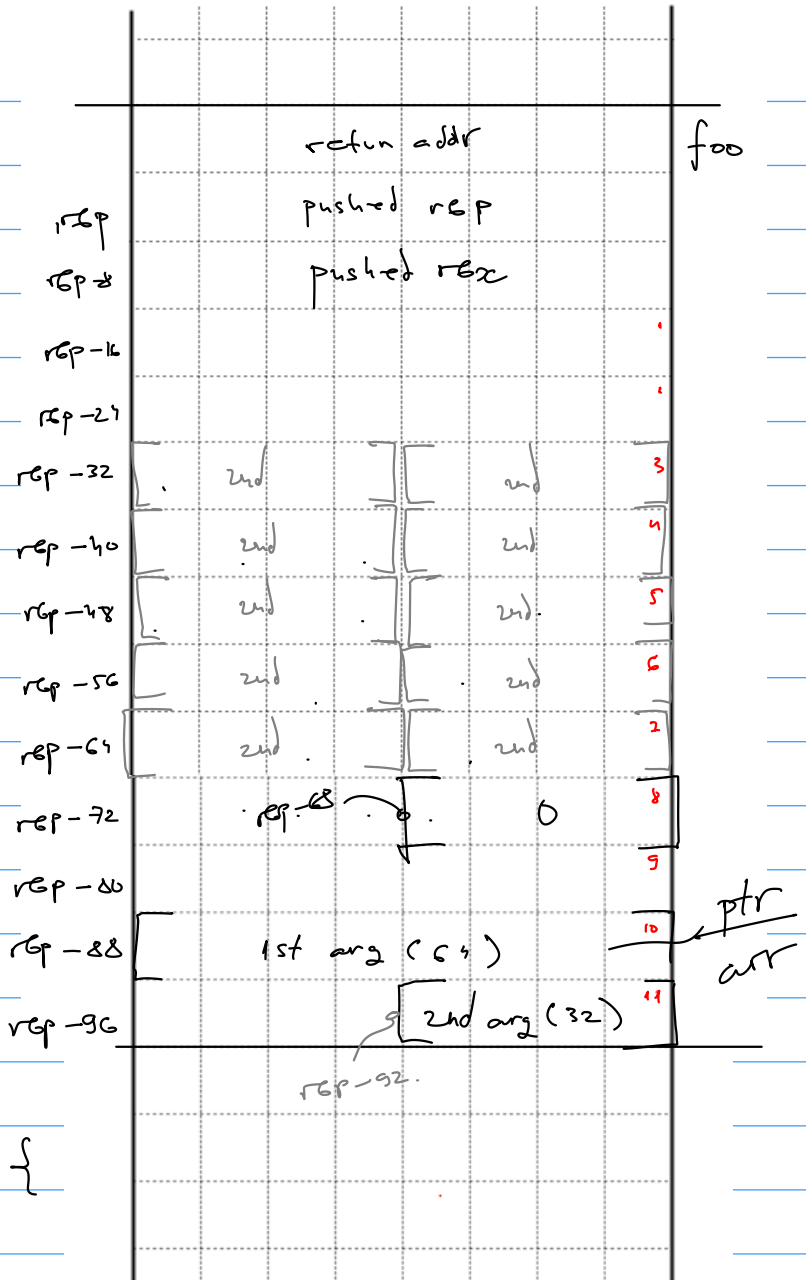 retun addr foo
rbp pushed rbp
rbp-8 pushed rbx
rbp-16
rbp-24
rbp-32 2nd 2nd 3
rbp-40 2nd 2nd 4
rbp-48 2nd 2nd 5
rbp-56 2nd 2nd 6
rbp-64 2nd 2nd 7
rbp-72 rbp-68 0 8
rbp-80 9
ptr
rbp-88 1st arg (64) 10
arr
rbp-96 2nd arg (32) 11
rbp-92.
{